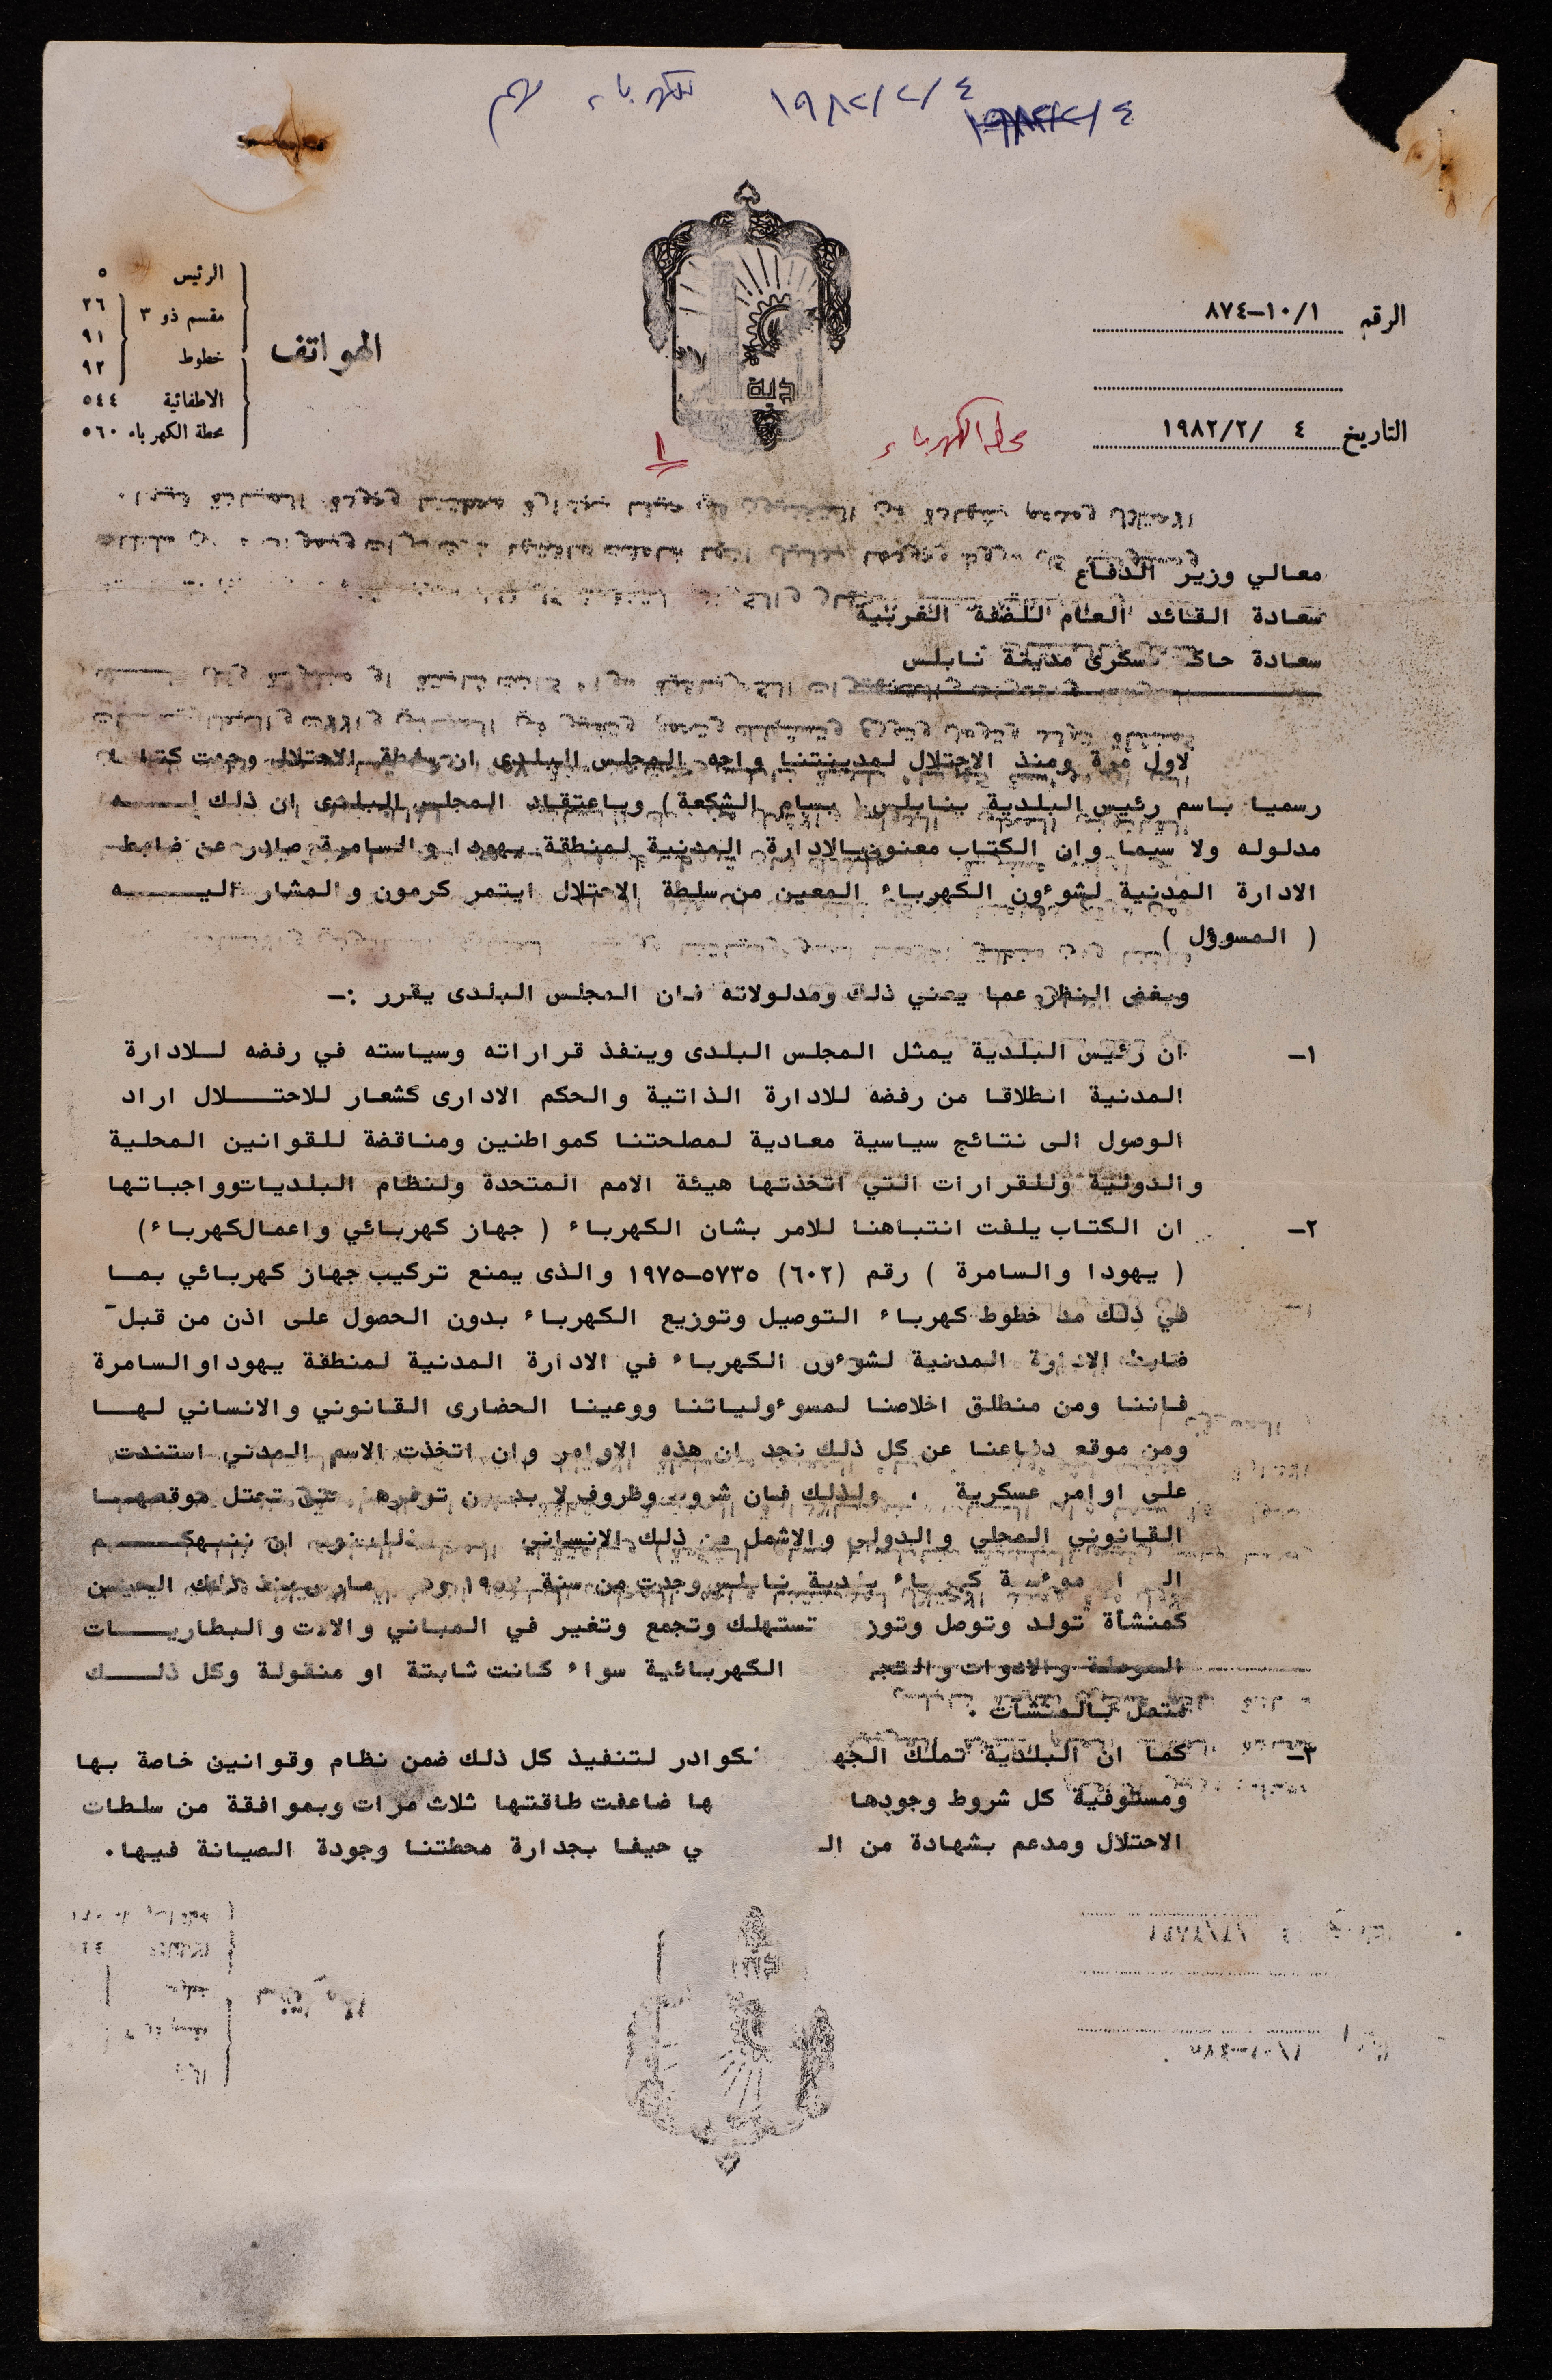 ١٩٨٢/٢/٤
١٩٨٢/٢/٤ كهرباء مهم
الرقم ١٠/١-٨٧٤
التاريخ ٤ /١٩٨٢/٢
الهواتف
الرئيس ٥
مقسم ذو ٣ خطوط ٢٦ ٩١ ٩٢
الاطفائية ٥٤٤
محطة الكهرباء ٥٦٠
محطة الكهرباء
١
معالي وزير الدفاع
سعادة القائد العام للضفة الغربية
سعادة حاكم عسكرى مدينة نابلس
لاول مرة ومنذ الاحتلال لمدينتنا واجه المجلس البلدى ان سلطة الاحتلال وجهت كتابا
رسميا باسم رئيس البلدية بنابلس ( بسام الشكعة ) وباعتقاد المجلس البلدى ان ذلك لـــه
مدلوله ولا سيما وان الكتاب معنون بالادارة المدنية لمنطقة يهودا والسامرة صادر عن ضابط
الادارة المدنية لشوءون الكهرباء المعين من سلطة الاحتلال ايتمر كرمون والمشار اليـــــه
( المسوؤل )
وبغض النظر عما يعني ذلك ومدلولاته فان المجلس البلدى يقرر :ـ
١ـ ان رئيس البلدية يمثل المجلس البلدى وينفذ قراراته وسياسته في رفضه لــلادارة
المدنية انطلاقا من رفضه للادارة الذاتية والحكم الادارى كشعار للاحتـــلال اراد
الوصول الى نتائج سياسية معادية لمصلحتنا كمواطنين ومناقضة للقوانين المحلية
والدولية وللقرارات التي اتخذتها هيئة الامم المتحدة ولنظام البلديات وواجباتها
٢ـ ان الكتاب يلفت انتباهنا للامر بشان الكهرباء ( جهاز كهربائي واعمال كهرباء )
( يهودا والسامرة ) رقم (٦٠٢) ٥٧٣٥ـ١٩٧٥ والذى يمنع تركيب جهاز كهربائي بمــا
في ذلك مد خطوط كهرباء التوصيل وتوزيع الكهرباء بدون الحصول على اذن من قبل
ضابط الادارة المدنية لشوءون الكهرباء في الادارة المدنية لمنطقة يهودا والسامرة
فاننا ومن منطلق اخلاصنا لمسوءولياتنا ووعينا الحضارى القانوني والانساني لهــا
ومن موقع دفاعنا عن كل ذلك نجد ان هذه الاوامر وان اتخذت الاسم المدني استندت
على اوامر عسكرية ، ولذلك فان شروط وظروف لا بد من توفرها حتى تحتل موقعهــا
القانوني المحلي والدولي والاشمل من ذلك الانساني ان ننبهكـــم
موءسسة كهرباء بلدية نابلس وجدت من سنة منذ ذلك الحين
كمنشأة تولد وتوصل وتوز تستهلك وتجمع وتغير في المباني والالات والبطاريـــات
الموصلة والادوات والتج الكهربائية سواء كانت ثابتة او منقولة وكل ذلــــك
متصل بالمنشات .
٣ـ كما ان البلدية تملك الجه كوادر لتنفيذ كل ذلك ضمن نظام وقوانين خاصة بها
ومستوفية كل شروط وجودها ها ضاعفت طاقتها ثلاث مرات وبموافقة من سلطات
الاحتلال ومدعم بشهادة من الـ ي حيفا بجدارة محطتنا وجودة الصيانة فيها .